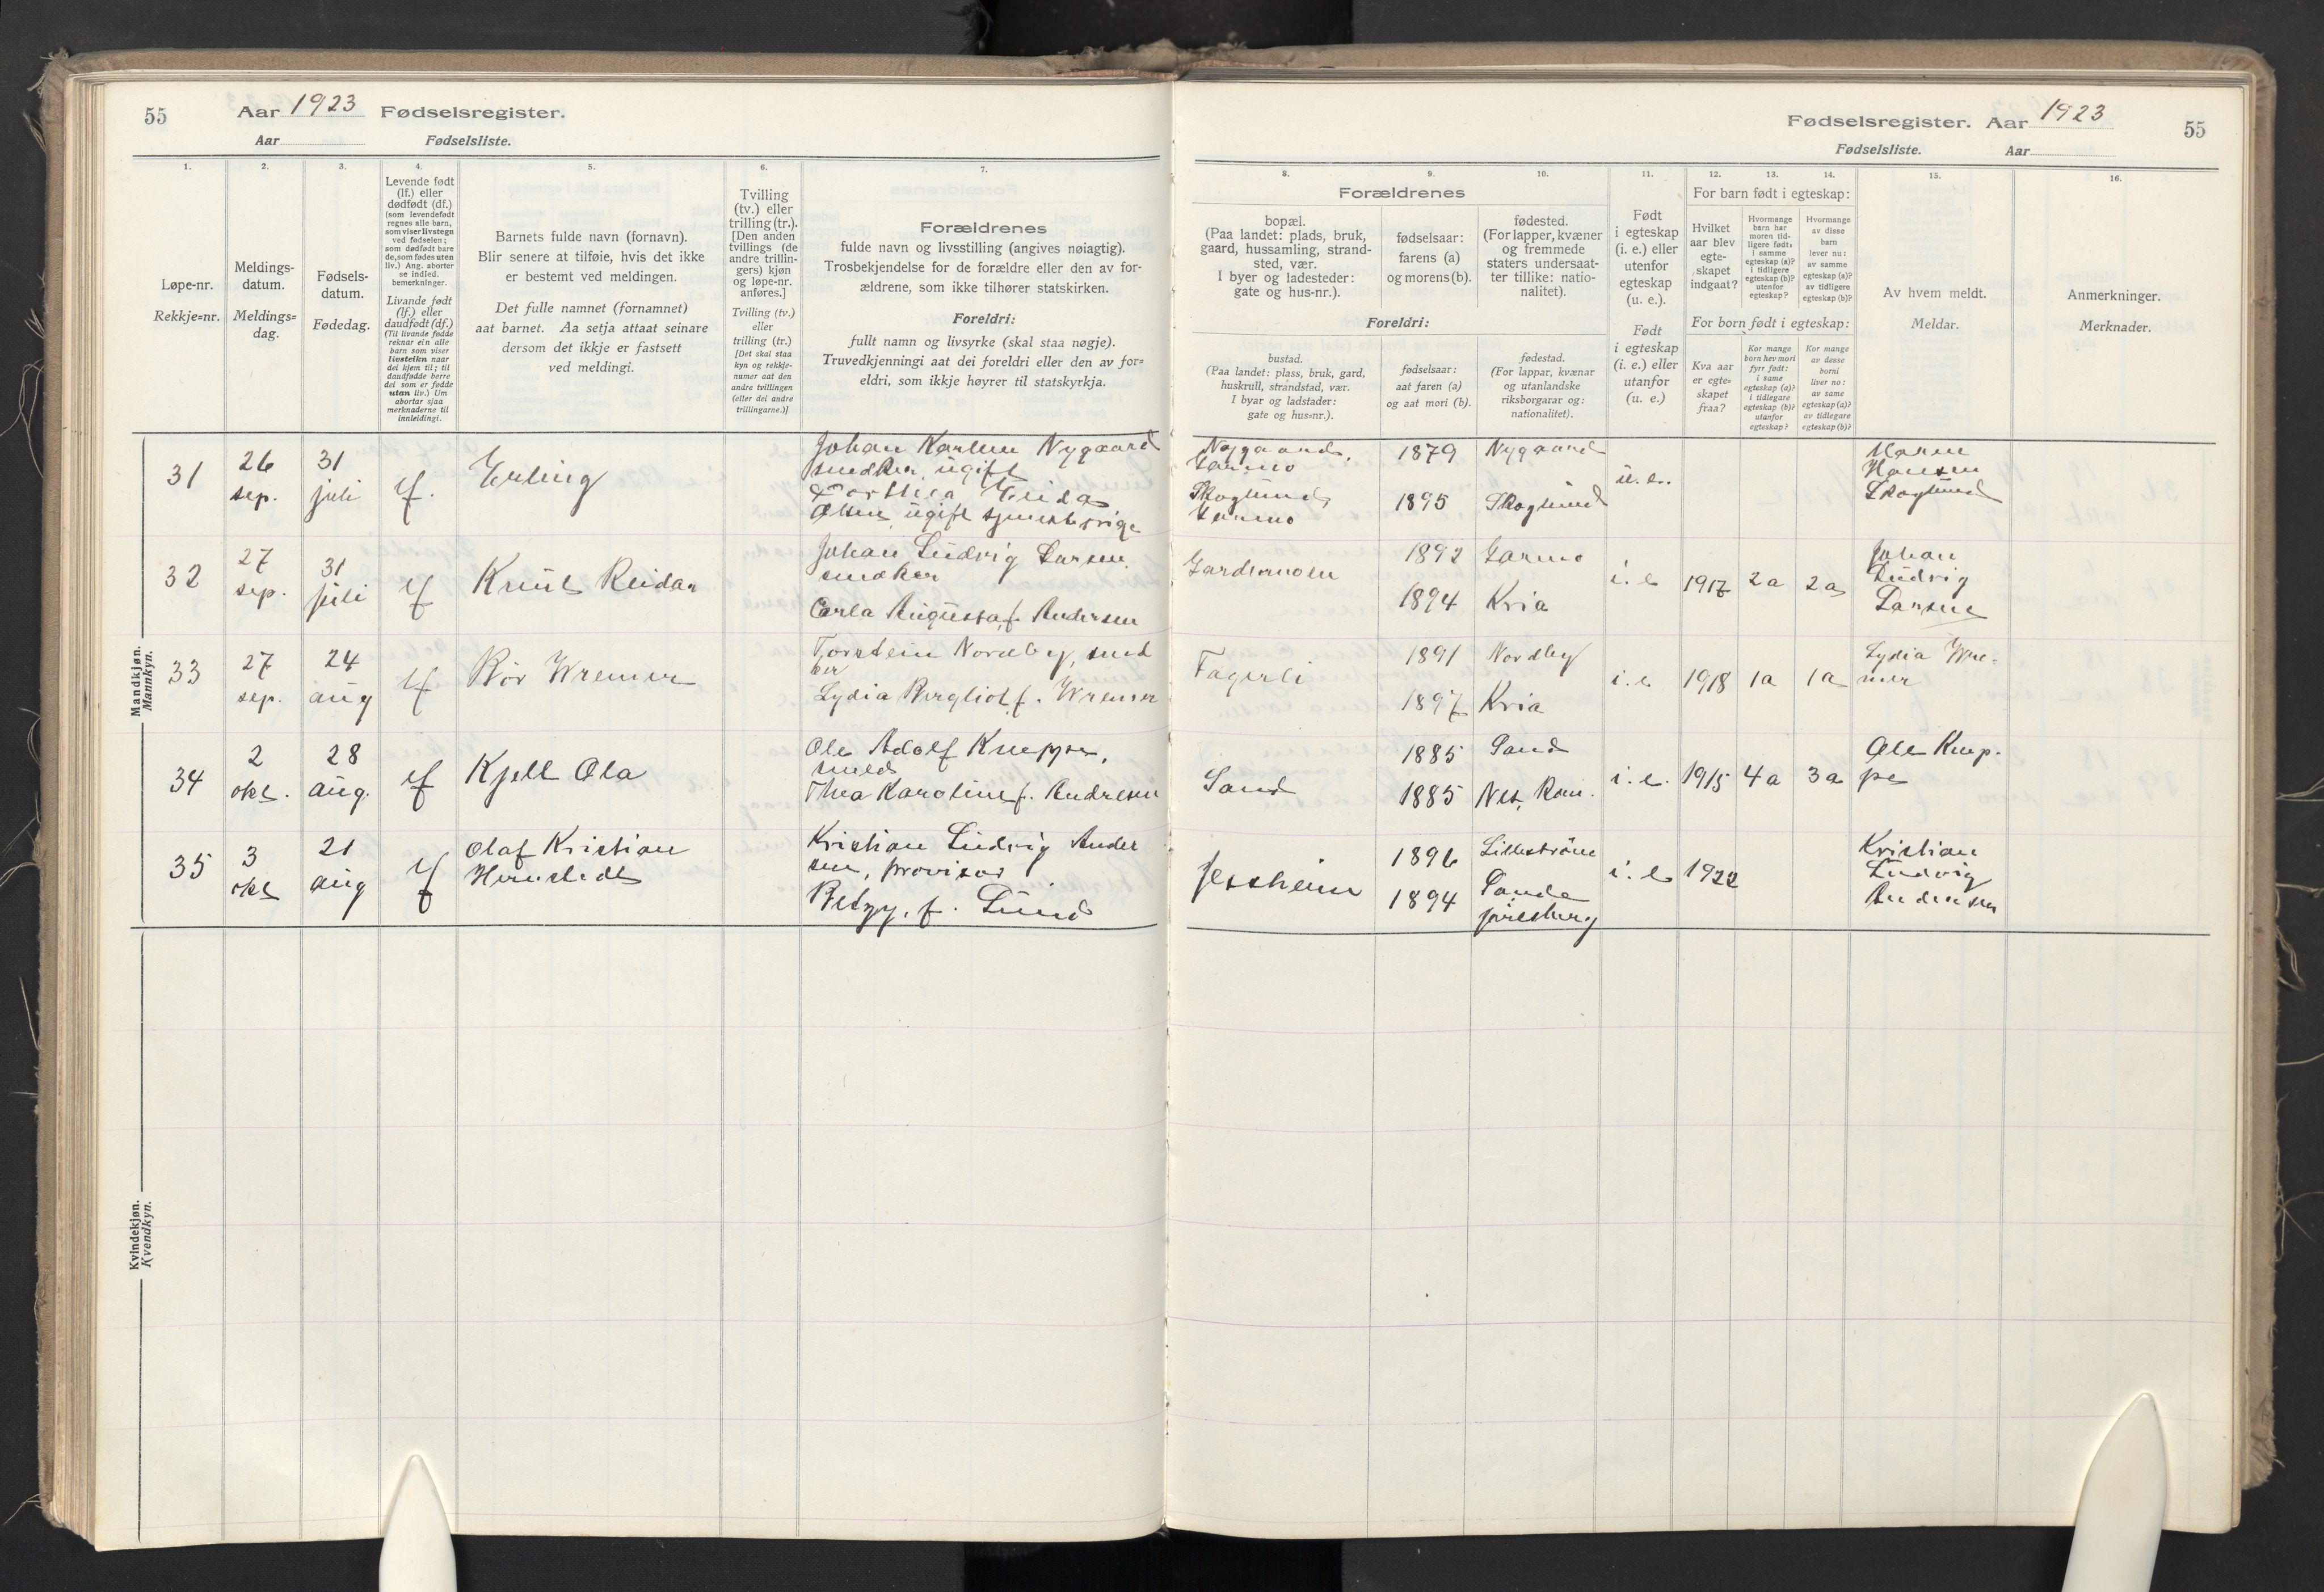 55
Aar 1923 Fødselsregister.
Aar Fødselsliste.
1. 2. 3. 4. 5. 6. 7.
Løpe-nr.
Rekkje=nr.
Meldings-
datum.
Meldings=
dag.
Fødsels-
datum.
Fødedag.
Levende født
(lf.) eller
dødfødt (df.)
(som levendefødt
regnes alle barn,
som viser livstegn
ved fødselen;
som dødfødt bare
de, som fødes uten
liv.) Ang. aborter
se indled.
bemerkninger.
Livande født
(lf.) eller
daudfødt (df.)
(Til livande fødde
reknar ein alle
barn som viser
livsteikn naar
dei kjem til; til
daudfødde berre
dei som er fødde
utan liv.) Um
abortar sjaa
merknaderne til
innleidingi.
Barnets fulde navn (fornavn).
Blir senere at tilføie, hvis det ikke
er bestemt ved meldingen.
Det fulle namnet (fornamnet)
aat barnet. Aa setja attaat seinare
dersom det ikkje er fastsett
ved meldingi.
Tvilling
(tv.) eller
trilling (tr.).
[Den anden
tvillings (de
andre trillin-
gers) kjøn
og løpe-nr.
anføres.]
Tvilling (tv.)
eller
trilling (tr.)
[Det skal staa
kyn og rekkje-
numer aat den
andre tvillingen
(eller dei andre
trillingarne.)]
Forældrenes
fulde navn og livsstilling (angives nøiagtig).
Trosbekjendelse for de forældre eller den av for-
ældrene, som ikke tilhører statskirken.
Foreldri:
fullt namn og livsyrke (skal staa nøgje).
Truvedkjenningi aat dei foreldri eller den av for=
eldri, som ikkje høyrer til statskyrkja.
Mandkjøn.
Mannkyn.
31
26
sep.
31
juli
lf.
Erling
Johan Karlsen Nygaard
snedker, ugift
Olsen, ugift syersk
32
27
sep.
31
juli
lf
Knut Reidar
Johan Ludvig Larsen,
snedker
Carla Augusta f. Andersen
33
27
sep.
24
aug
lf
Bør Wremer
Torstein Nordby, sned
ker
Lydia Bergliot f. Wremer
34
2
okt.
28
aug.
lf
Kjell Ola
Ole Adolf Kneppe,
smed
Thea Karoline f. Andresen
35
3
okt
21
aug
lf
Olaf Kristian
Kristian Ludvig Ander
sen, provisor
Betzy, f. Lund
Kvindekjøn.
Kvendkyn.
Fødselsregister. Aar 1923
55
Fødselsliste. Aar
8. 9. 10. 11. 12. 13. 14. 15. 16.
Forældrenes
bopæl.
(Paa landet: plads, bruk,
gaard, hussamling, strand-
sted, vær.
I byer og ladesteder:
gate og hus-nr.).
fødselsaar:
farens (a)
og morens (b).
fødested.
(For lapper, kvæner
og fremmede
staters undersaat-
ter tillike: natio-
nalitet).
Foreldri:
bustad.
(Paa landet: plass, bruk, gard,
huskrull, strandstad, vær.
I byar og ladstader:
gate og hus=nr.).
fødselsaar:
aat faren (a)
og aat mori (b).
fødestad.
(For lappar, kvænar
og utanlandske
riksborgarar og:
nationalitet).
Født
i egteskap
(i. e.) eller
utenfor
egteskap
(u. e.).
Født
i egteskap
(i. e.) eller
utanfor
egteskap
(u. e.)
For barn født i egteskap:
Hvilket
aar blev
egte-
skapet
indgaat?
Hvormange
barn har
moren tid-
ligere født:
i samme
egteskap (a)?
i tidligere
egteskap (b)?
utenfor
egteskap?
Hvormange
av disse
barn
lever nu:
av samme
egteskap (a)?
av tidligere
egteskap (b)?
For born født i egteskap:
Kva aar
er egte=
skapet
fraa?
Kor mange
born hev mori
fyrr født:
i same
egteskap (a)?
i tidlegare
egteskap (b)?
utanfor
egteskap?
Kor mange
av desse
borni
liver no:
av same
egteskap (a)?
av tidlegare
egteskap (b)?
Av hvem meldt.
Meldar.
Anmerkninger.
Merknader.
Nygaard,
Garmo
Skoglund
Garmo
1879
1895
Nygaard
Skoglund
u. e.
Maren
Hansen
Skoglund
Gardermoen
1892
1894
Garmo
Kria
i. e
1917
2a
2a
Johan
Ludvig
Larsen
Fagerli
1891
1897
Nordby
Kria
i. e
1918
1a
1a
Lydia Wre-
mer
Sand
1885
1885
Sand
Nes, Rom.
i. e.
1915
4a
3a
Ole Knep-
pe
Jessheim
1896
1894
Lillestrøm
Sande
Jarlsberg
i. e
1922
Kristian
Ludvig
Andersen